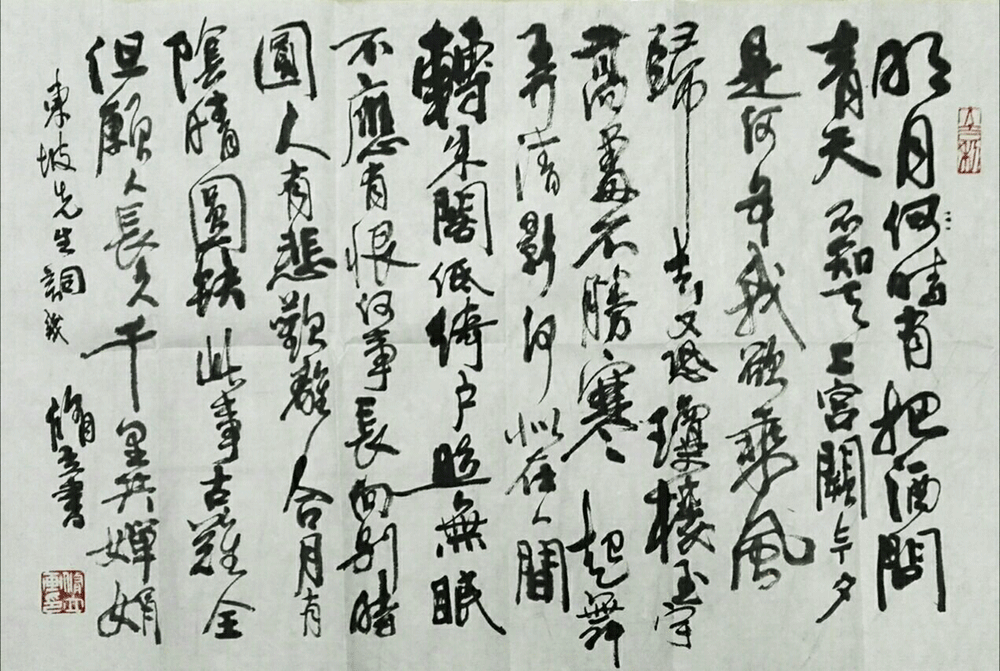 明月何時有把酒問
青天不知天上宮闕今夕
是何年我欲乘風
歸去又恐瓊樓玉宇
高處不勝寒起舞
弄清影何似在人間
轉朱閣低綺戶照無眠
不應有恨何事長向別時
圓人有悲歡離合月有
陰晴圓缺此事古難全
但願人長久千里共嬋娟
東坡先生詞
書